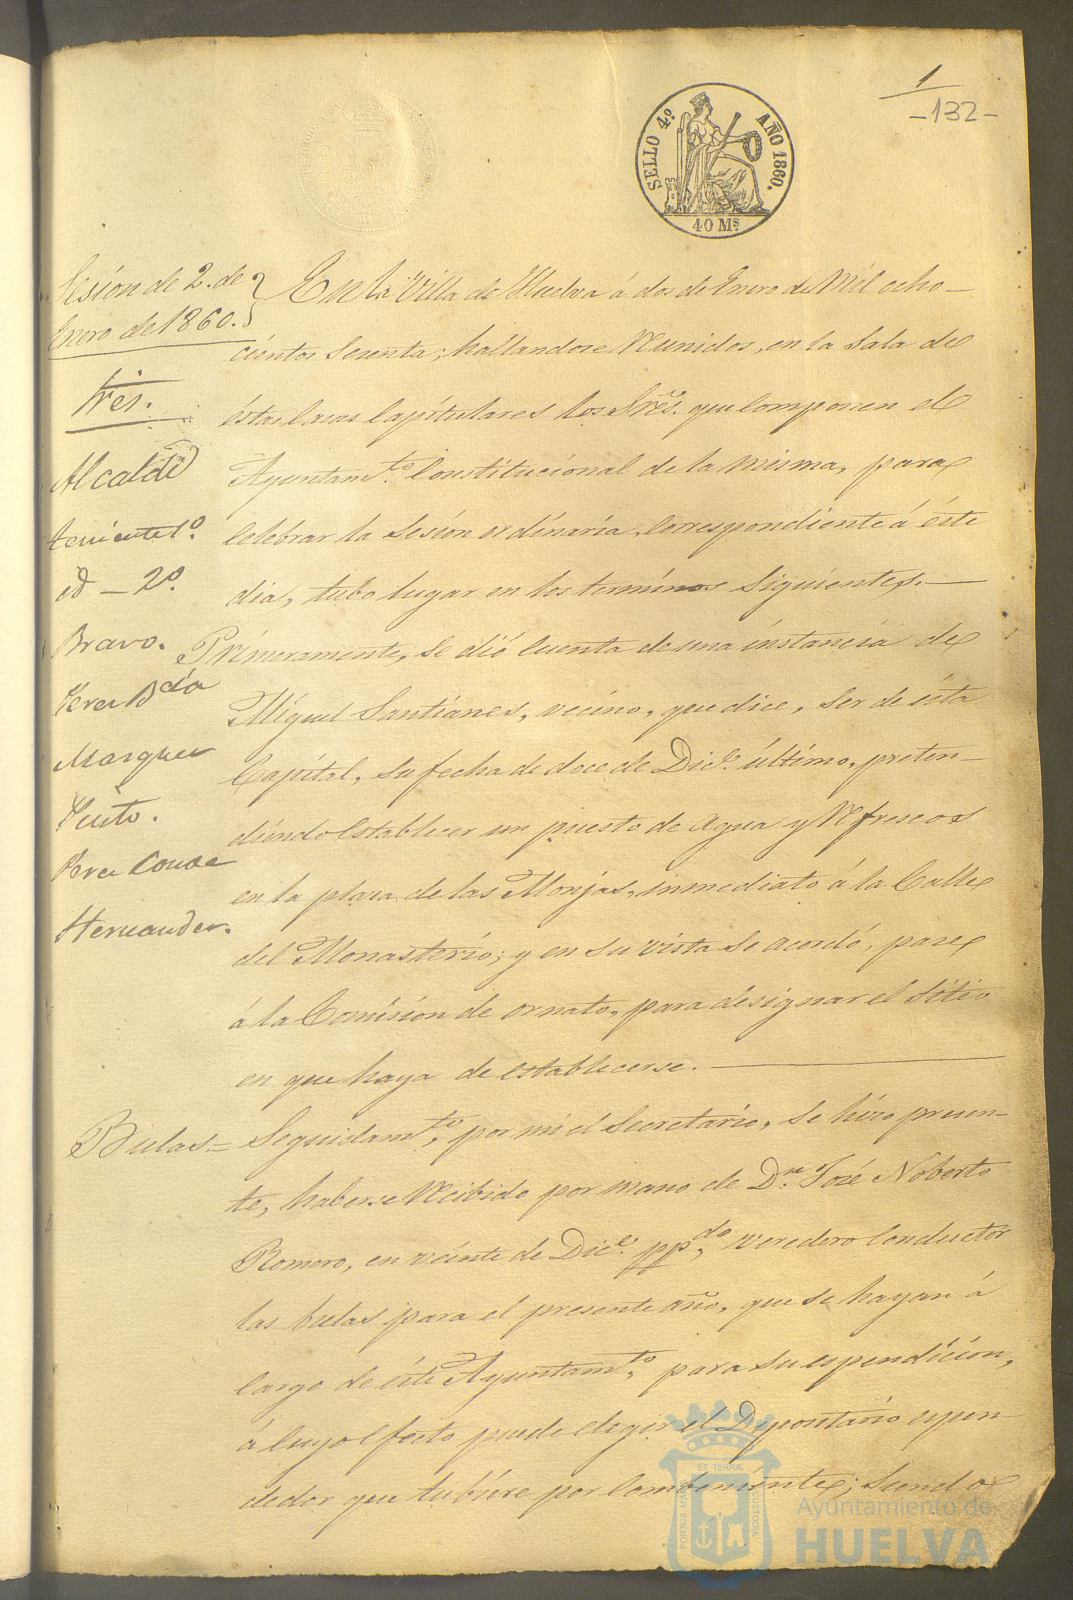 1
-132-
SELLO 4.º AÑO 1860.
40 Ms.
Sesión de 2. de
Enero de 1860.
Sres.
Alcalde
teniente 1.º
id - 2.º
Bravo.
Perez Bda
Marquez
Pinto.
Perez Conde
Hernandez.
En la Villa de Huelva á dos de Enero de Mil ocho-
cientos Sesenta; hallandose Reunidos, en la Sala de
éstas Casas Capítulares los Sres. que Componen el
Ayuntamto. Constitucional de la misma, para
Celebrar la Sesión ordinaria, Correspondiente á éste
dia, tubo lugar en los terminos Siguientes.—
Primeramente, Se dió Cuenta de una instancia de
Miguel Santianes, vecino, que dice, Ser de ésta
Capital, Su fecha de doce de Dice. último, preten-
diendo Establecer un puesto de Agua y Refrescos
en la plaza de las Monjas, inmediato á la Calle
del Monasterio; y en Su vista Se acordó, pase
á la Comisión de ornato, para designar el Sitio
en que haya de establecerse.—
Bulas= Seguidamte, por mi el Secretario, Se hizo presen-
te, haberse Recibido por mano de Dn. José Noberto
Romero, en veinte de Dice. ppdo, Veredero Conductor
las bulas para el presente año, que Se hayan á
Cargo de éste Ayuntamto, para Su espendición,
á Cuyo Efecto puede elegir el Depositario espen-
dedor que tubiere por Combeniente; Siendo
Ayuntamiento de
HUELVA